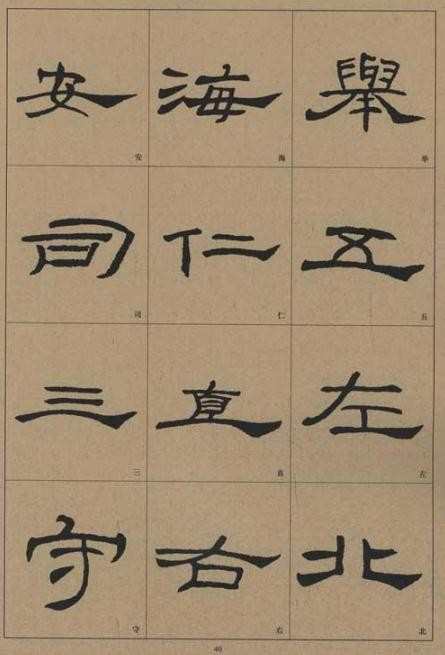 舉
举
五
五
左
左
北
北
海
海
仁
仁
直
直
右
右
安
安
司
司
三
三
守
守